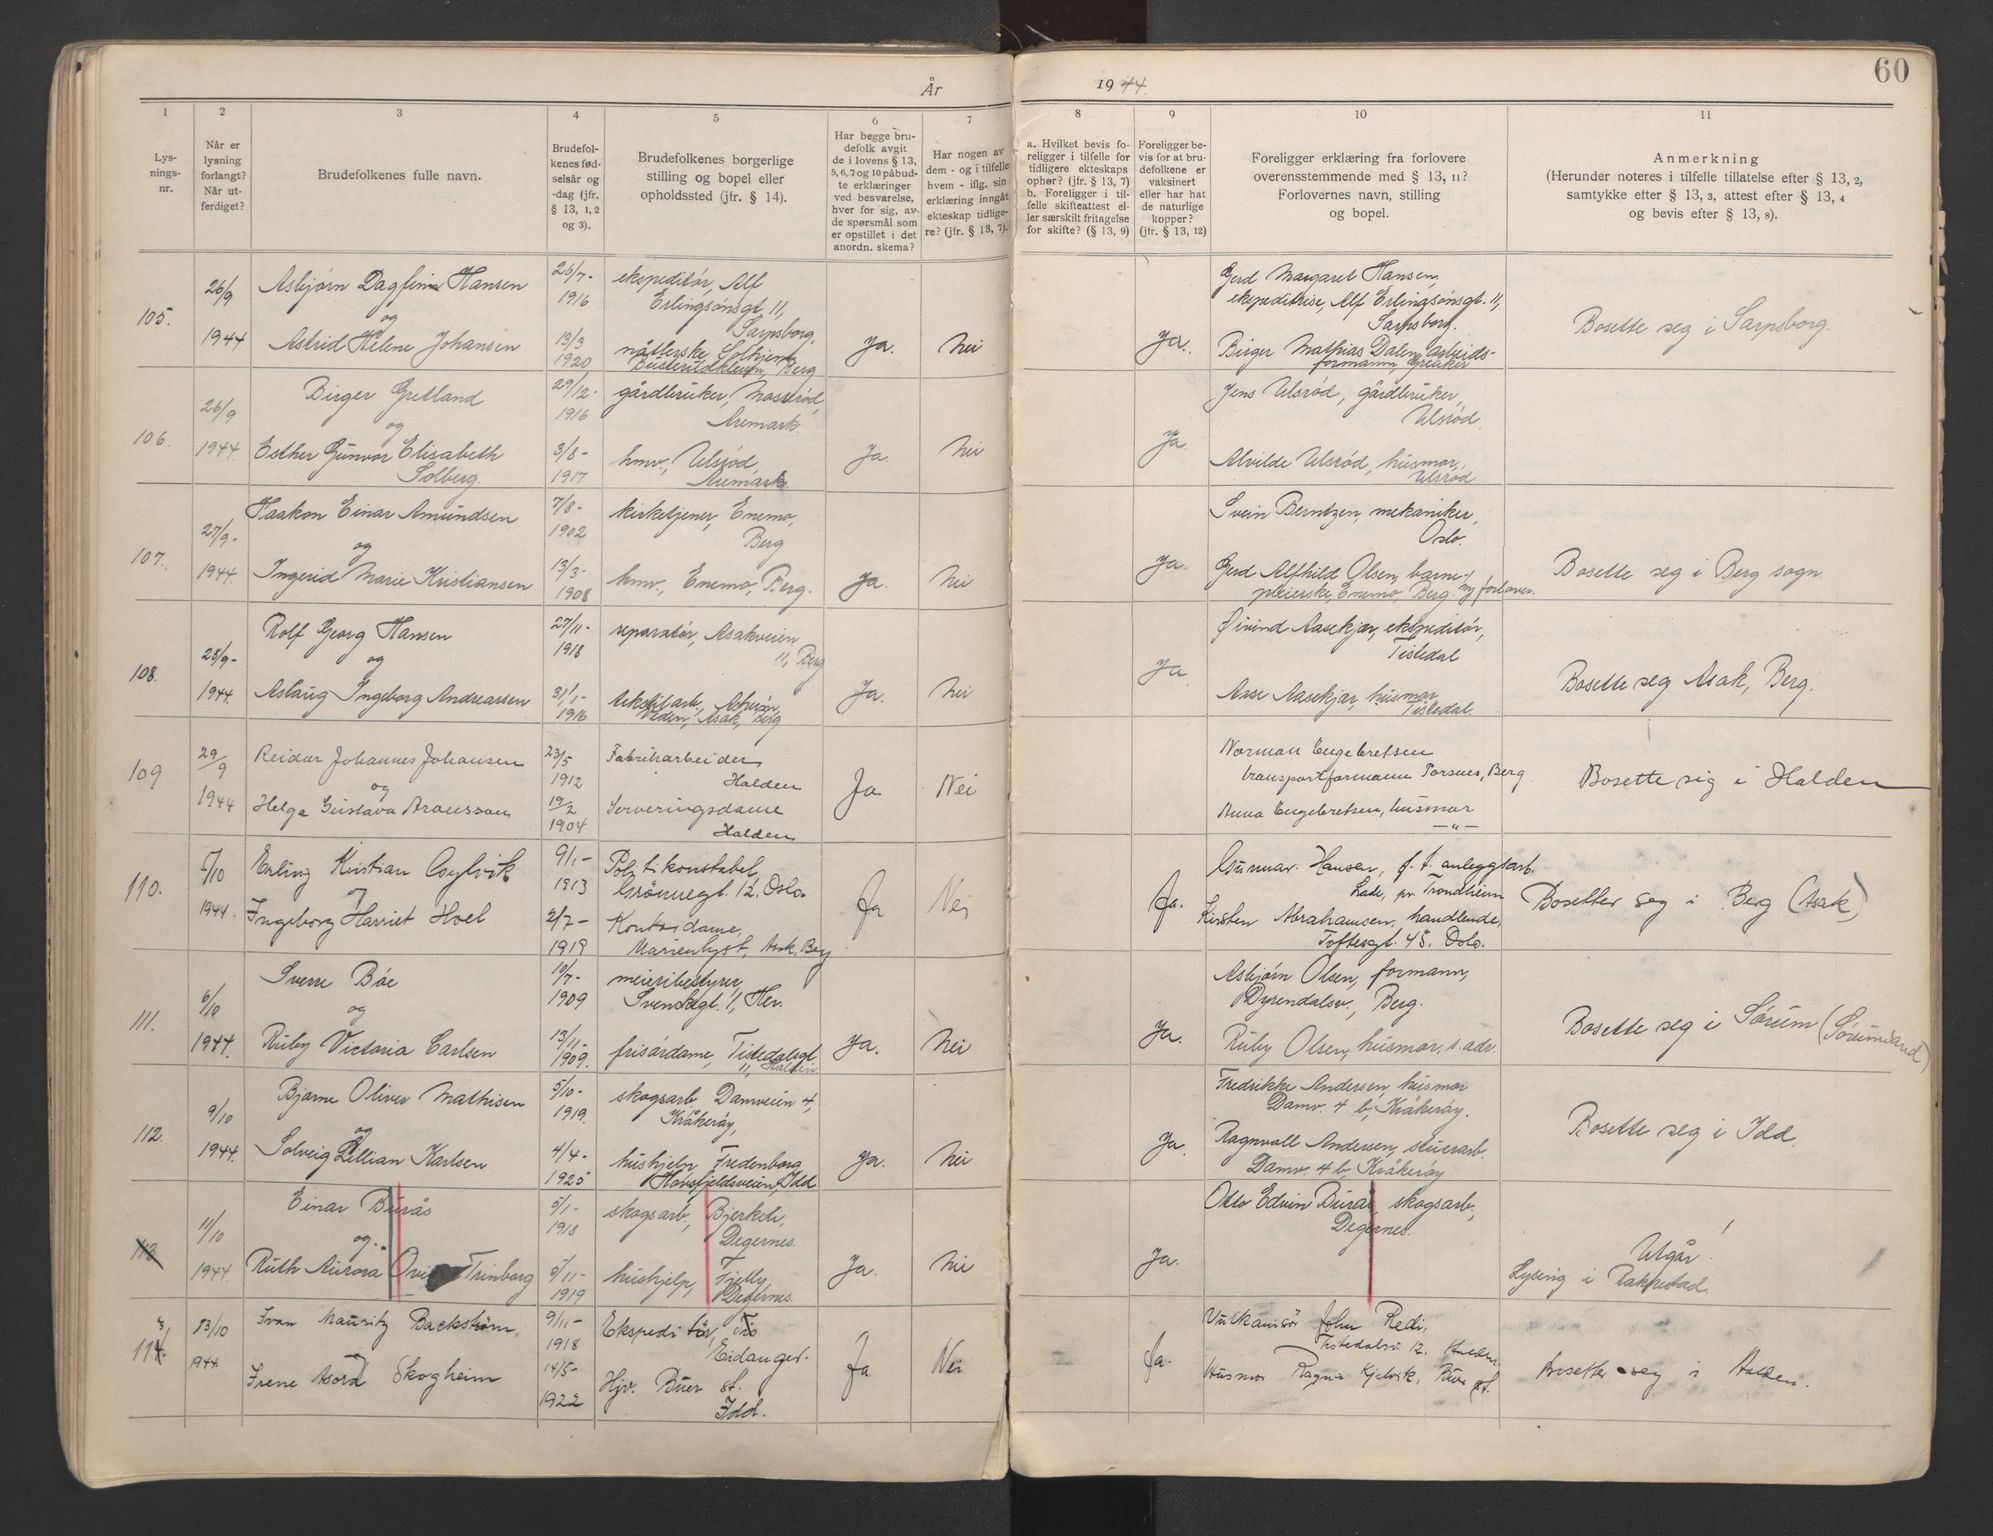 År
1944.
60
1
2
3
4
5
6
7
8
9
10
11
Lys-
nings-
nr.
Når er
lysning
forlangt?
Når ut-
ferdiget?
Brudefolkenes fulle navn.
Brudefol-
kenes fød-
selsår og
-dag (jfr.
§ 13, 1, 2
og 3).
Brudefolkenes borgerlige
stilling og bopel eller
opholdssted (jfr. § 14).
Har begge bru-
defolk avgit
de i lovens § 13,
5, 6, 7 og 10 påbud-
te erklæringer
ved besvarelse,
hver for sig, av
de spørsmål som
er opstillet i det
anordn. skema?
Har nogen av
dem - og i tilfelle
hvem - iflg. sin
erklæring inngåt
ekteskap tidlige-
re? (jfr. § 13, 7).
a. Hvilket bevis fo-
religger i tilfelle for
tidligere ekteskaps
ophør? (jfr. § 13, 7)
b. Foreligger i til-
felle skifteattest el-
ler særskilt fritagelse
for skifte? (§ 13, 9)
Foreligger be-
vis for at bru-
defolkene er
vaksinert
eller har hat
de naturlige
kopper?
(jfr. § 13, 12)
Foreligger erklæring fra forlovere
overensstemmende med § 13, 11?
Forlovernes navn, stilling
og bopel.
Anmerkning
(Herunder noteres i tilfelle tillatelse efter § 13, 2,
samtykke efter § 13, 3, attest efter § 13, 4
og bevis efter § 13, 8).
105.
26/9
1944
Asbjørn Dagfinn Hansen
og
Astrid Helene Johansen
26/7-
1916
13/3
1920
ekspeditør, Alf
Erlingsønsgt. 11,
Sarpsborg,
nåtlerske, Solhjem
Busterudkleven, Berg
Ja.
Nei
Ja.
Gerd Margaret Hansen,
ekspeditrise, Alf Erlingsønsgt. 11,
Sarpsborg.
Birger Mathias Dalen, arbeids-
formann, Greåker
Bosette seg i Sarpsborg.
106.
26/9
1944.
Birger Gretland
og
Esther Gunvor Elisabeth
Solberg.
29/12-
1916
3/8-
1917
gårdbruker, Mostrød,
Aremark.
hmv., Ulsrød,
Aremark
Ja.
Nei
Ja.
Jens Ulsrød, gårdbruker,
Ulsrød.
Alvilde Ulsrød, husmor,
Ulsrød
107.
27/9-
1944.
Haakon Einar Amundsen
og
Ingerid Marie Kristiansen
7/8-
1902
13/3-
1908
kirketjener, Enemo,
Berg
hmv., Enemo, Berg.
Ja.
Nei
Ja.
Svein Berntzen, mekaniker,
Oslo.
Gerd Alfhild Olsen, barne-
pleierske, Enemo, Berg. ny forlover.
Bosette seg i Berg sogn.
108.
28/9-
1944.
Rolf Georg Hansen
og
Aslaug Ingeborg Andreassen
27/11-
1918
31/1-
1916
reparatør, Asakveien
11, Berg
tekstilarb.,
Veden, Asak, Berg
Ja.
Nei
Ja.
Øivind Aasekjær, ekspeditør,
Tistedal
Aase Aasekjær, husmor,
Tistedal.
Bosette seg Asak, Berg.
109
29/9
1944
Reidar Johannes Johansen
og
Helga Gustava Aronsson
23/5
1912
19/2
1904
Fabrikarbeider
Halden
Serveringsdame
Halden
Ja
Nei
Norman Engebretsen
transportformann Torsnes, Berg
Anna Engebretsen, husmor
—"—
Bosette sig i Halden
110.
5/10
1944.
Erling Kristian Gylvik
og
Ingeborg Harriet Hoel
9/1-
1913
2/7-
1919
Politikonstabel,
Grønnegt. 12. Oslo.
Kontordame,
Marienlyst, Asak, Berg
Ja
Nei
Ja.
Gunnar Hansen, f. t. anleggsarb.
Lade, pr Trondheim
Kirsten Abrahamsen, handlende,
Toftesgt. 45. Oslo.
Bosetter seg i Berg (Asak)
111.
6/10
1944.
Sverre Bøe
og
Ruby Victoria Carlsen
10/7-
1909
13/11-
1909.
meieribestyrer,
Svenskegt. 1, Her.
frisørdame, Tistedalsgt.
11, Halden
Ja.
Nei
Ja.
Asbjørn Olsen, formann,
Dyrendalsv., Berg.
Ruby Olsen, husmor, s. adr.
Bosette seg i Sørum (Sørumsand)
112.
9/10
1944.
Bjarne Oliver Mathisen
og
Solveig Lillian Karlsen
5/10-
1919.
4/4-
1925
skogsarb. Damveien 4,
Kråkerøy,
hushjelp Fredenborg
Hovsfjeldsveien, Idd
Ja.
Nei
Ja.
Fredrikke Andersen, husmor
Damv. 4 b, Kråkerøy.
Ragnvall Andersen, stuerarb.
Damv. 4 b, Kråkerøy
Bosette seg i Idd.
113
11/10
1944.
Einar Burås
og
Ruth Aurora Trinborg
5/1-
1918
5/11-
1919
skogsarb., Bjerkeli,
Degernes.
hushjelp, Fjelly,
Degernes.
Ja.
Nei
Ja.
Otto Edvin Burås, skogsarb.,
Degernes.
Utgår!
Lysing i Rakkestad.
114.
13/10
1944.
Ivan Mauritz Backstrøm,
og
Irene Asora Skogheim
9/11-
1918
14/5-
1922
Ekspeditør,
Eidanger.
Hjv. Buer st.
Idd.
Ja
Nei
Ja.
Vulkanisør John Redi,
Tistedalsv. 12. Halden.
Husmor Ragna Kjelvik, Buer st.
Bosetter seg i Halden.